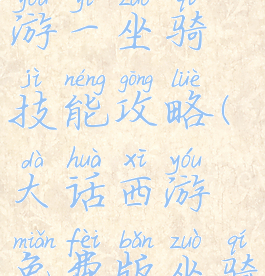 yóu yī zuò qí
游一坐骑
jì néng gōng lüè
技能攻略(
dà huà xī yóu
大话西游
miǎn fèi bǎn zuò qí
免费版坐骑